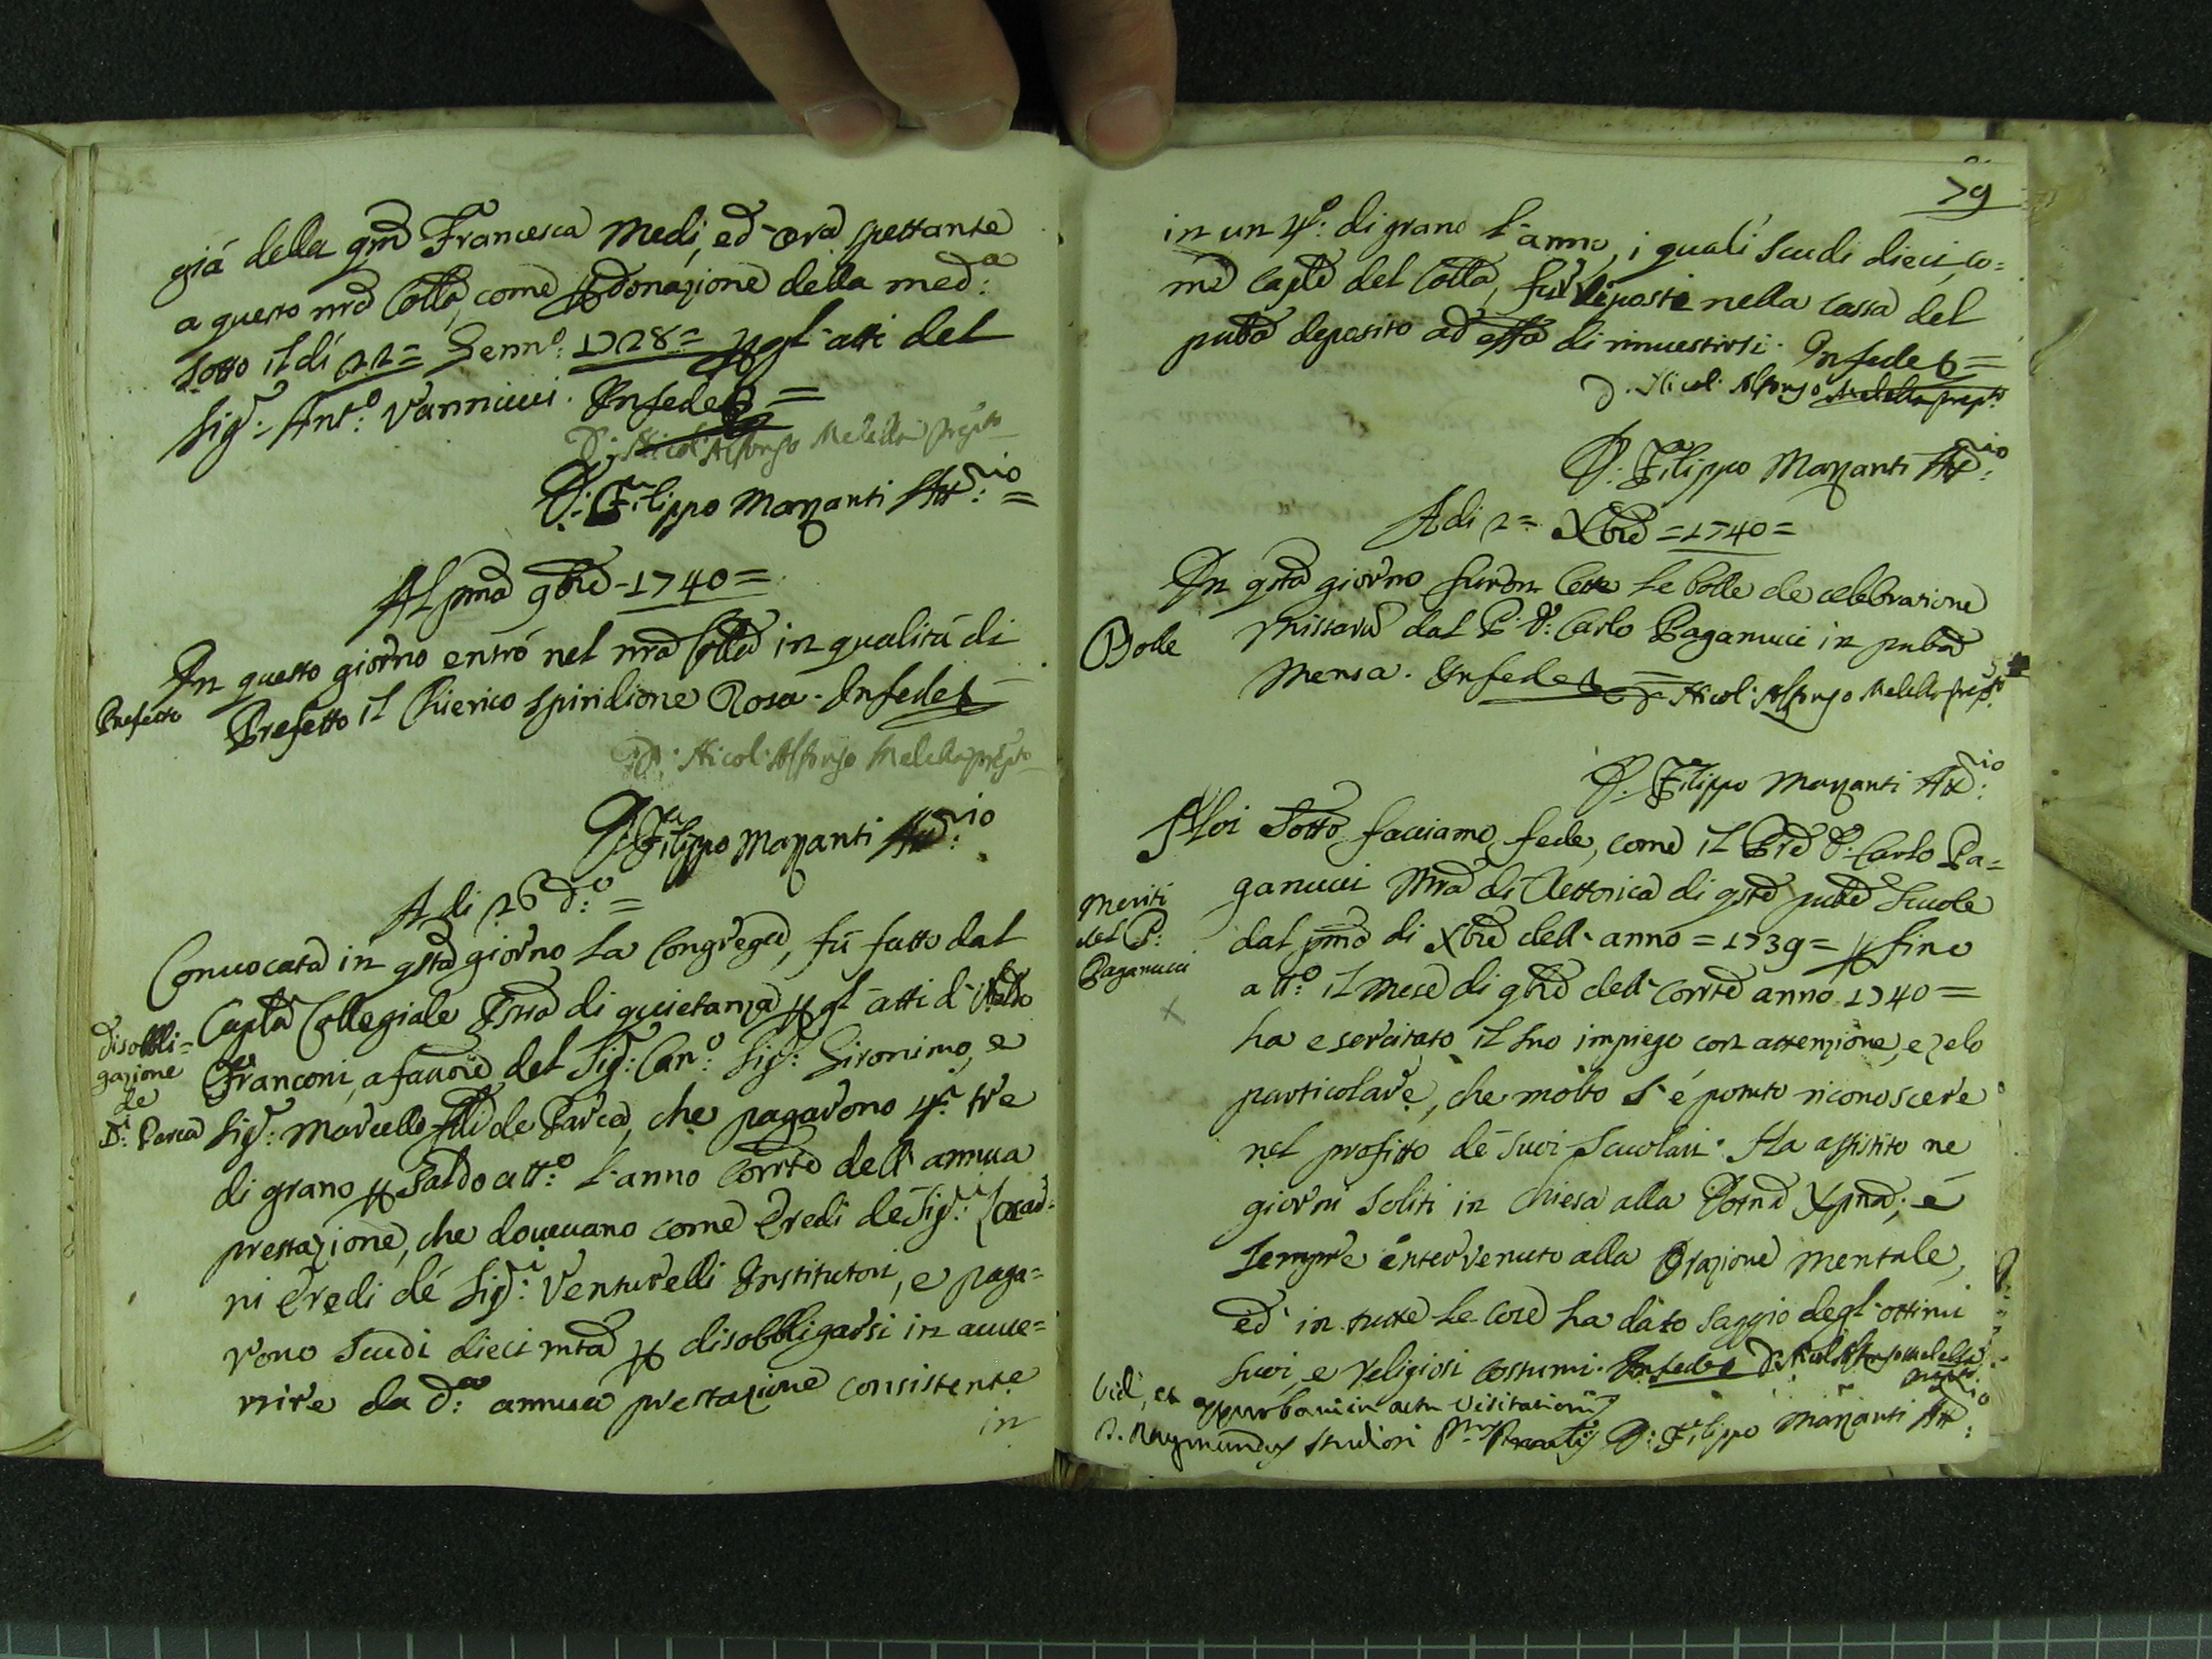 già della qm Francesca Medi, ed ora spettante
a questo nrõ Collõ, come p donazione della med:ª
sotto il dì 22= Genn:º 1728= p gl'atti del
Sigr: Ant:º Vannicci. In fede =
D. Nicol. Alfonso Melella prep.to
D. Filippo Mazzanti Att:rio =
Al pmõ 9bre - 1740 =
In questo giorno entrò nel nrõ Collõ in qualità di
Prefetto
Prefetto il Chierico Spiridione Rosa. In fede
D. Nicol. Alfonso Melella prep.to
D. Filippo Mazzanti Att:rio
A di 26 d:º =
Convocata in qstõ giorno la Congregã, fù fatto dal
Caplõ Collegiale di quietanza p gl'atti d'
disobbli=
gazione
de
Franconi, a favore del Sigr: Can:º Sigr: Gironimo, e
Sigr: Marcello flli de Parca, che pagarono tre
di grano p saldo att:º l'anno corrte dell'annua
prestazione, che dovevano come Eredi de Sigri:
ni Eredi dé Sigri: Venturelli Institutori, e paga=
rono scudi dieci mta p disobbligarsi in avve=
nire da d:ª annua prestazione consistente
in
79
in un di grano l'anno, i quali scudi dieci, co=
me caple del Collõ, fur deposti nella cassa del
pubõ deposito ad effõ di rinvestirsi. In fede =
D. Nicol. Alfonso Melella prep.to
D. Filippo Mazzanti Att:rio
A di 2= Xbre =1740=
In qstõ giorno furon lette le bolle de celebratione
Bolle
Missarũ dal P. D: Carlo Paganucci in pubã
Mensa. In fede =
D. Nicol. Alfonso Melella prep.to
D. Filippo Mazzanti Att:rio
Noi sotto facciamo fede, come il Pre D. Carlo Pa=
ganucci Mrõ di Rettorica di qste pube Scuole
Meriti
del P:
Paganucci
dal pmõ di Xbre dell'anno =1739= p fino
att:º il mese di 9bre dell'corrte anno 1740=
ha esercitato il suo impiego con attenzione, e zelo
particolare, che molto s'é potuto riconoscere
nel profitto dé suoi Scuolari. Ha assistito ne
giorni soliti in Chiesa alla Dottna Xpna; é
sempre intervenuto alla Orazione mentale,
ed in tutte le cose ha dato saggio degl'ottimi
suoi, e religiosi costumi. In fede D. Nicol. Alfonso Melella
prep.to
Vidi, et approbavi in actu Visitationis
D. Raymundus Studiosi D. Filippo Mazzanti Att:rio